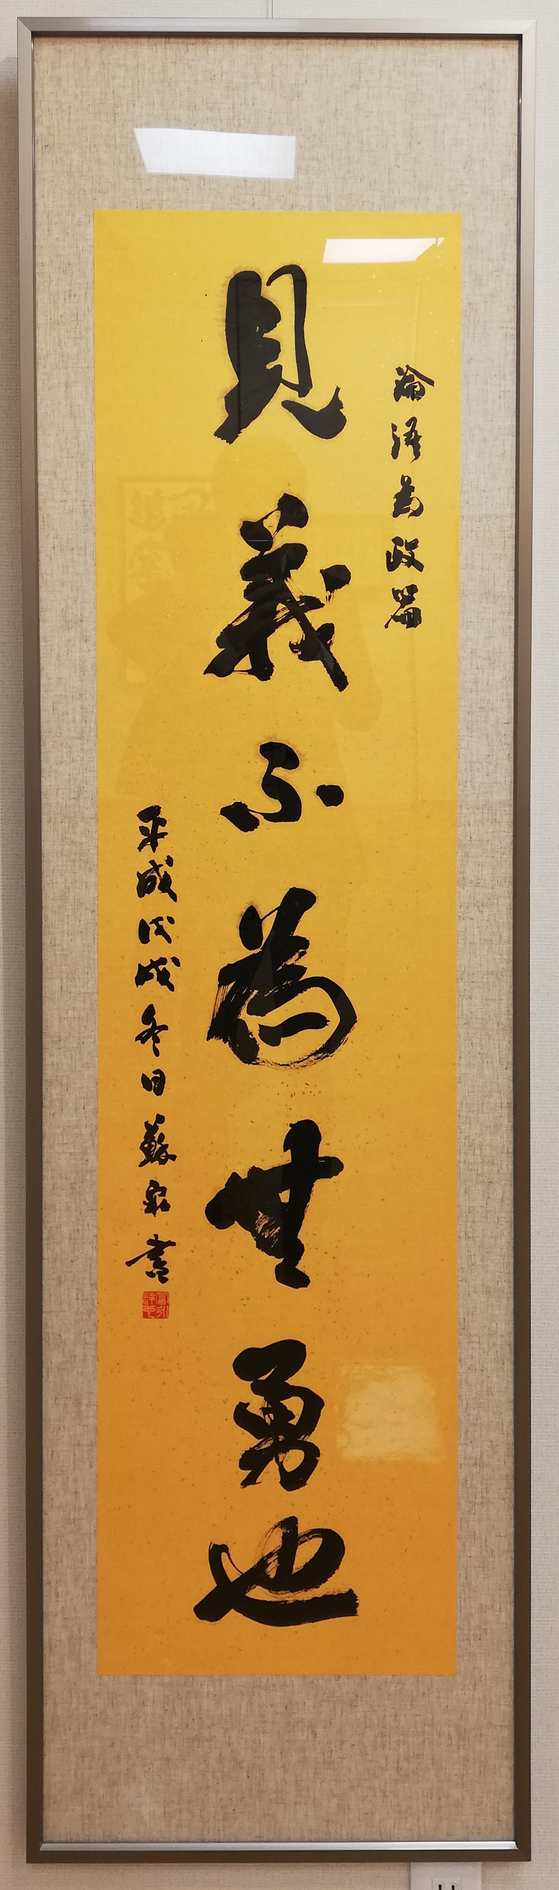 論語為政篇
見義不為無勇也
平成戊戌冬日蘇泉書